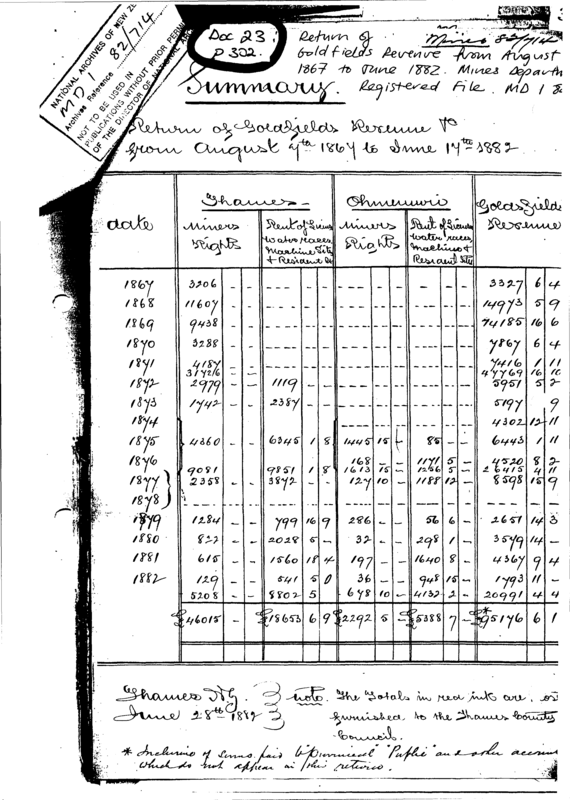 NATIONAL ARCHIVES OF NEW ZE
Archives Reference 82/714
MD 1
NOT TO BE USED IN
PUBLICATIONS WITHOUT PRIOR PERM
OF THE DIRECTOR OF NATIONAL
Doc 23
p 302.
Mines 82/714
Return of
Goldfields Revenue from August
1867 to June 1882. Mines Departm
Registered File. MD 1 8
Summary.
Return of Goldfields Revenue
from August 7th 1867 to June 17th 1882
date Thames Ohinemuri Goldsfields Revenue
Miners Rights Rent of Water races Machine Site & Resident Miners Rights Rent of water races, Machine & Resident Site
1867 3206 - - 3327 6 4
1868 11607 - - 14973 5 9
1869 9438 - - 74185 16 6
1870 3288 - - 7867 6 4
1871 4187 - - 7416 1 11
31726 - - 47769 16 10
1872 2979 - - 1119 - - 5951 5 2
1873 1742 - - 2387 - - 5197 9
1874 4302 12 11
1875 4360 - - 6345 1 8 1445 15 - 85 - - 6443 1 11
1876 168 - - 1171 5 - 4520 8 2
9081 - - 9851 1 8 1613 15 - 1256 5 - 26415 4 11
1877 2358 - - 3872 - - 127 10 - 1188 12 - 8598 15 9
1878
1879 1284 - - 799 16 9 286 - - 56 6 - 2651 14 3
1880 822 - - 2028 5 - 32 - - 298 1 - 3579 14 -
1881 615 - - 1560 18 4 197 - - 1640 8 - 4367 9 4
1882 129 - - 541 5 0 36 - - 948 15 - 1793 11 -
5208 - - 8802 5 678 10 - 4132 2 - 20991 4 4
£46015 - - £18653 6 9 £2292 5 - £5388 7 - £*95176 6 1
Thames N.Z. } note. The Totals in red ink are, as
June 28th 1882 } furnished to the Thames County
Council.
* Inclusive of sums paid to Provincial "Public" and other accoun
which do not appear in this returns.